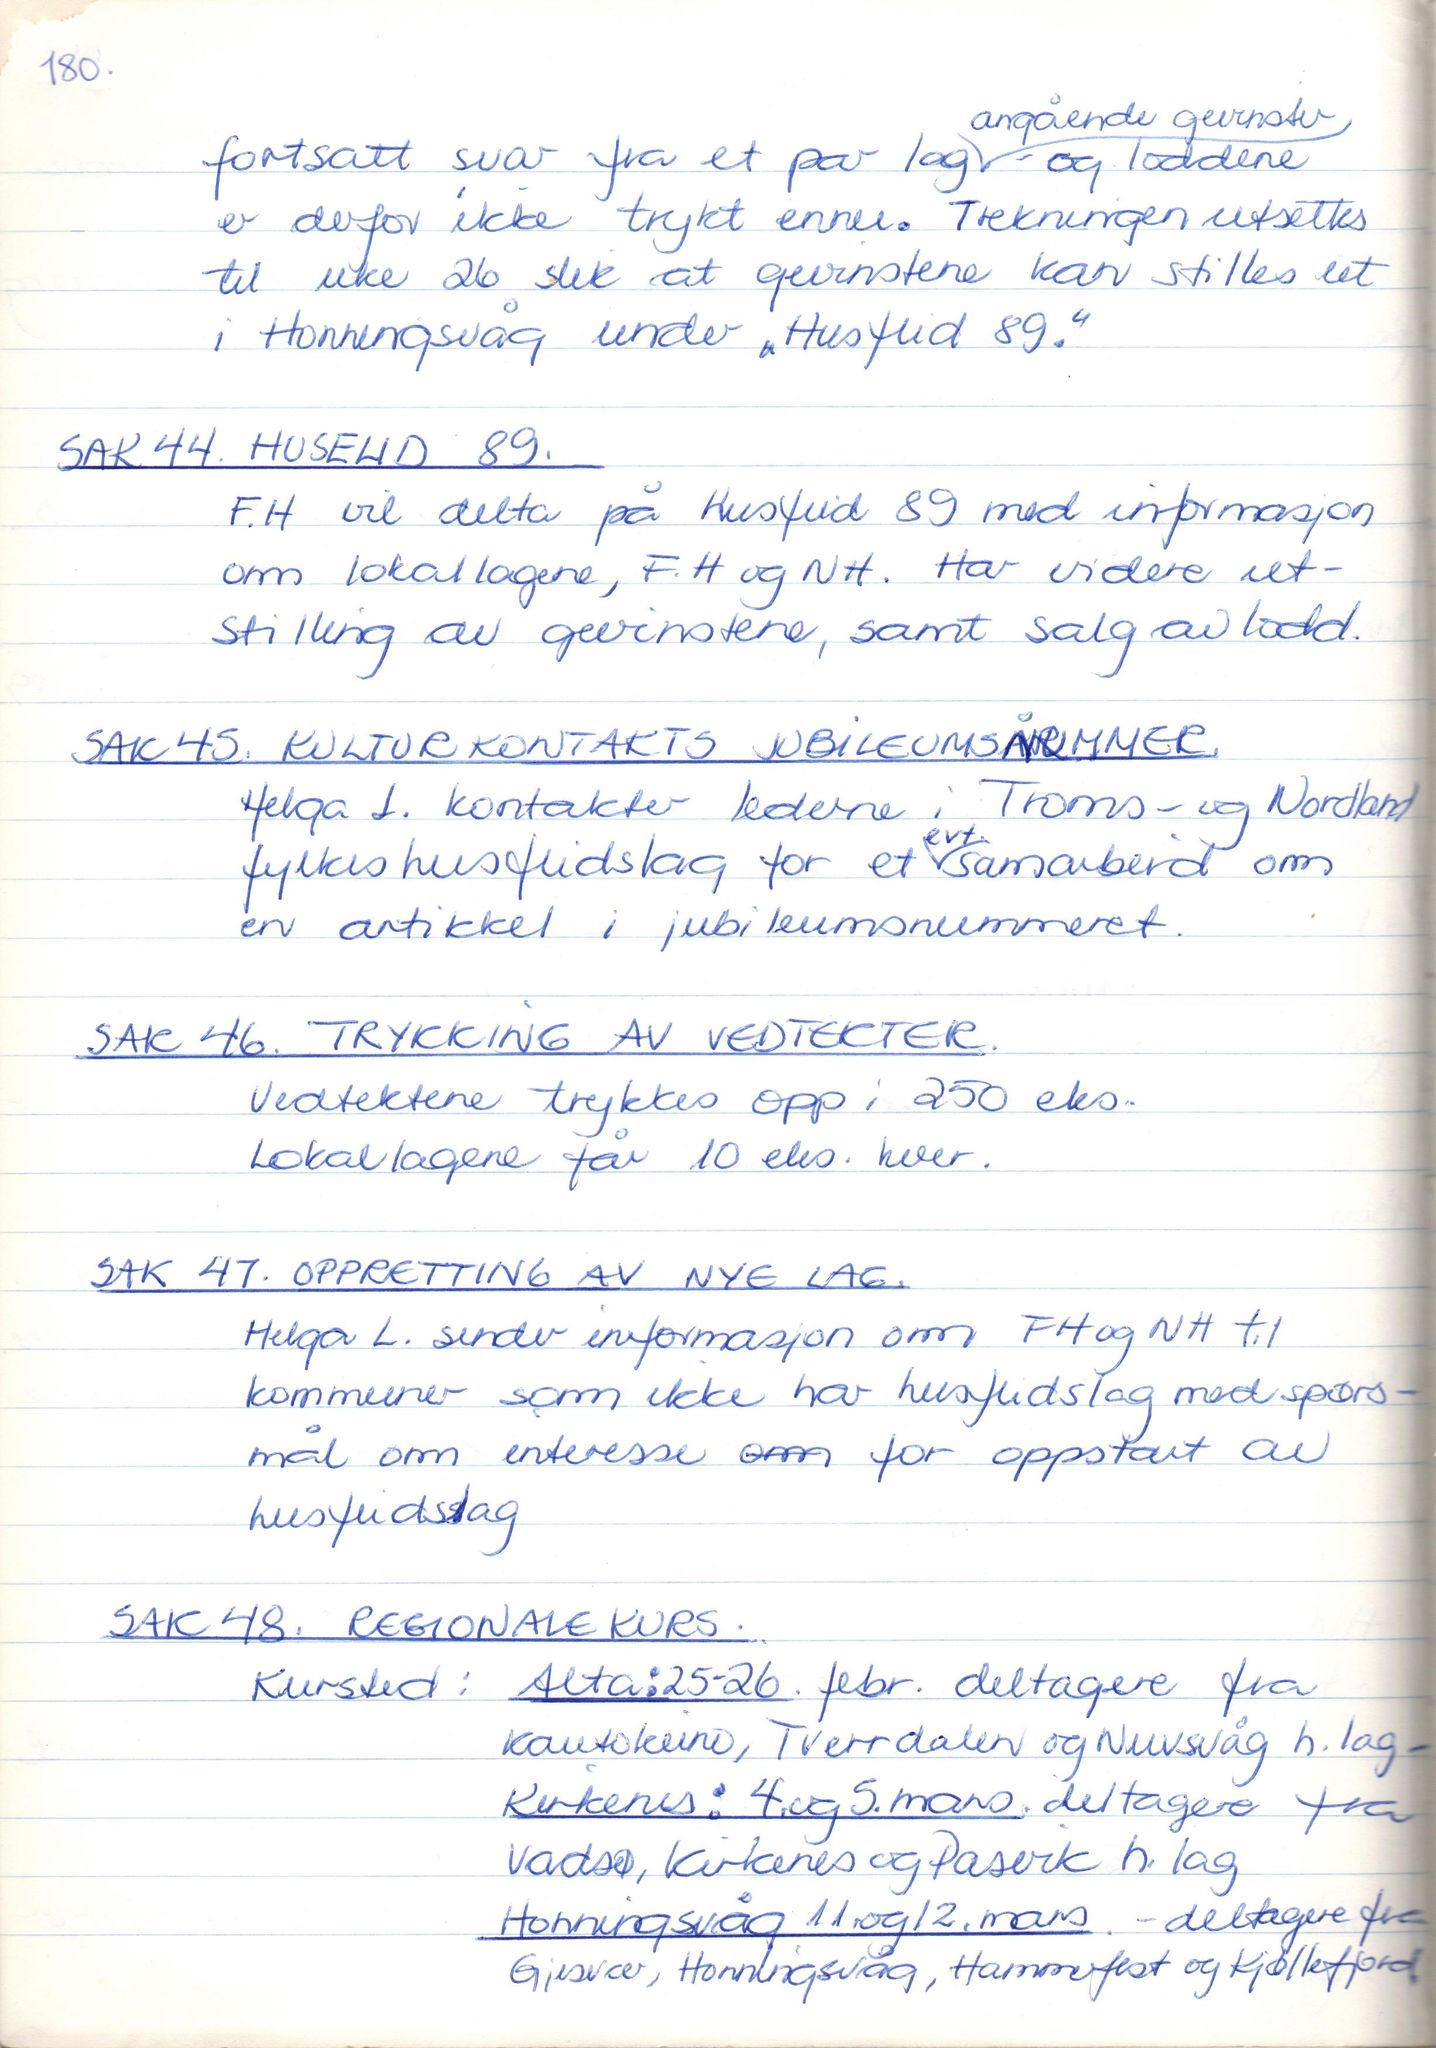 180.
angående gevinster
fortsatt svar fra et par lag - og loddene
er derfor ikke trykt ennu. Trekningen utsettes
til uke 26 slik at gevinstene kan stilles ut
i Honningsvåg under „Husflid 89."
SAK 44. HUSFLID 89.
F.H vil delta på Husflid 89 med informasjon
om lokallagene, F.H og NH. Har videre ut-
stilling av gevinstene, samt salg av lodd.
SAK 45. KULTURKONTAKTS JUBILEUMSNUMMER.
Helga L. kontakter lederne i Troms- og Nordland
evt.
fylkeshusflidslag for et samarbeid om
en artikkel i jubileumsnummeret.
SAK 46. TRYKKING AV VEDTEKTER.
Vedtektene trykkes opp i 250 eks.
Lokallagene får 10 eks. hver.
SAK 47. OPPRETTING AV NYE LAG.
Helga L. sender informasjon om FH og NH til
kommuner som ikke har husflidslag med spørs-
mål om interesse om for oppstart av
husflidslag
SAK 48. REGIONALE KURS.
Kursted: Alta: 25-26. febr. deltagere fra
Kautokeino, Tverrdalen og Nuvsvåg h. lag-
Kirkenes: 4. og 5. mars. deltagere fra
Vadsø, Kirkenes og Pasvik h. lag
Honningsvåg 11. og 12. mars - deltagere fra
Gjesvær, Honningsvåg, Hammerfest og Kjøllefjord.